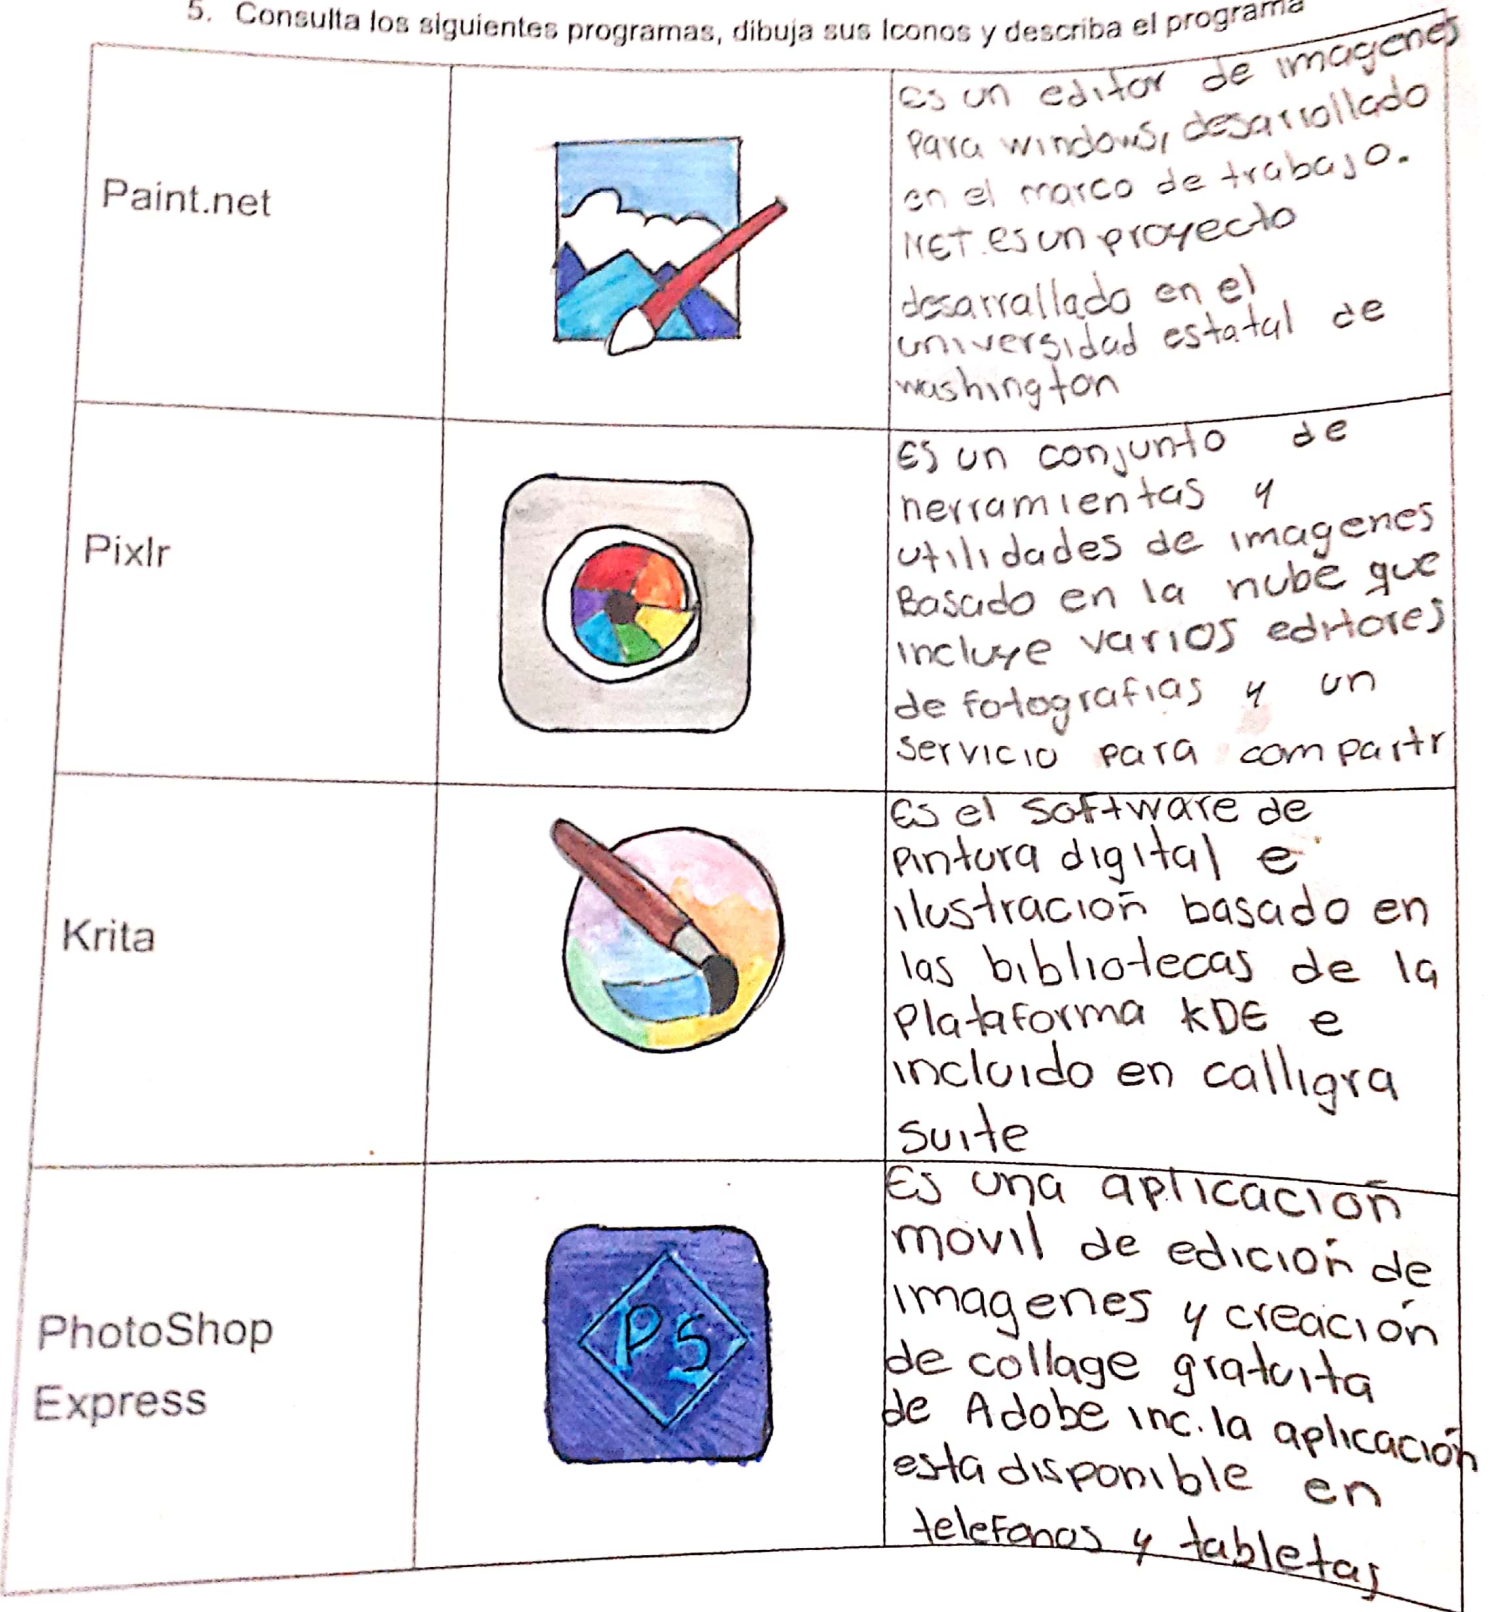 5. Consulta los siguientes programas, dibuja sus Iconos y describa el programa
Paint.net
es un editor de imagenes
para windows, desarrollado
en el marco de trabajo.
NET. es un proyecto
desarrallado en el
universidad estatal de
washington
Pixlr
Es un conjunto de
herramientas y
utilidades de imagenes
Basado en la nube que
incluye varios editores
de fotografias y un
servicio para compartr
Krita
es el software de
pintura digital e
ilustración basado en
las bibliotecas de la
plataforma KDE e
incluido en calligra
suite
PhotoShop
Express
PS
Es una aplicación
móvil de edición de
imagenes y creación
de collage gratuita
de Adobe inc. la aplicación
esta disponible en
telefonos y tabletas